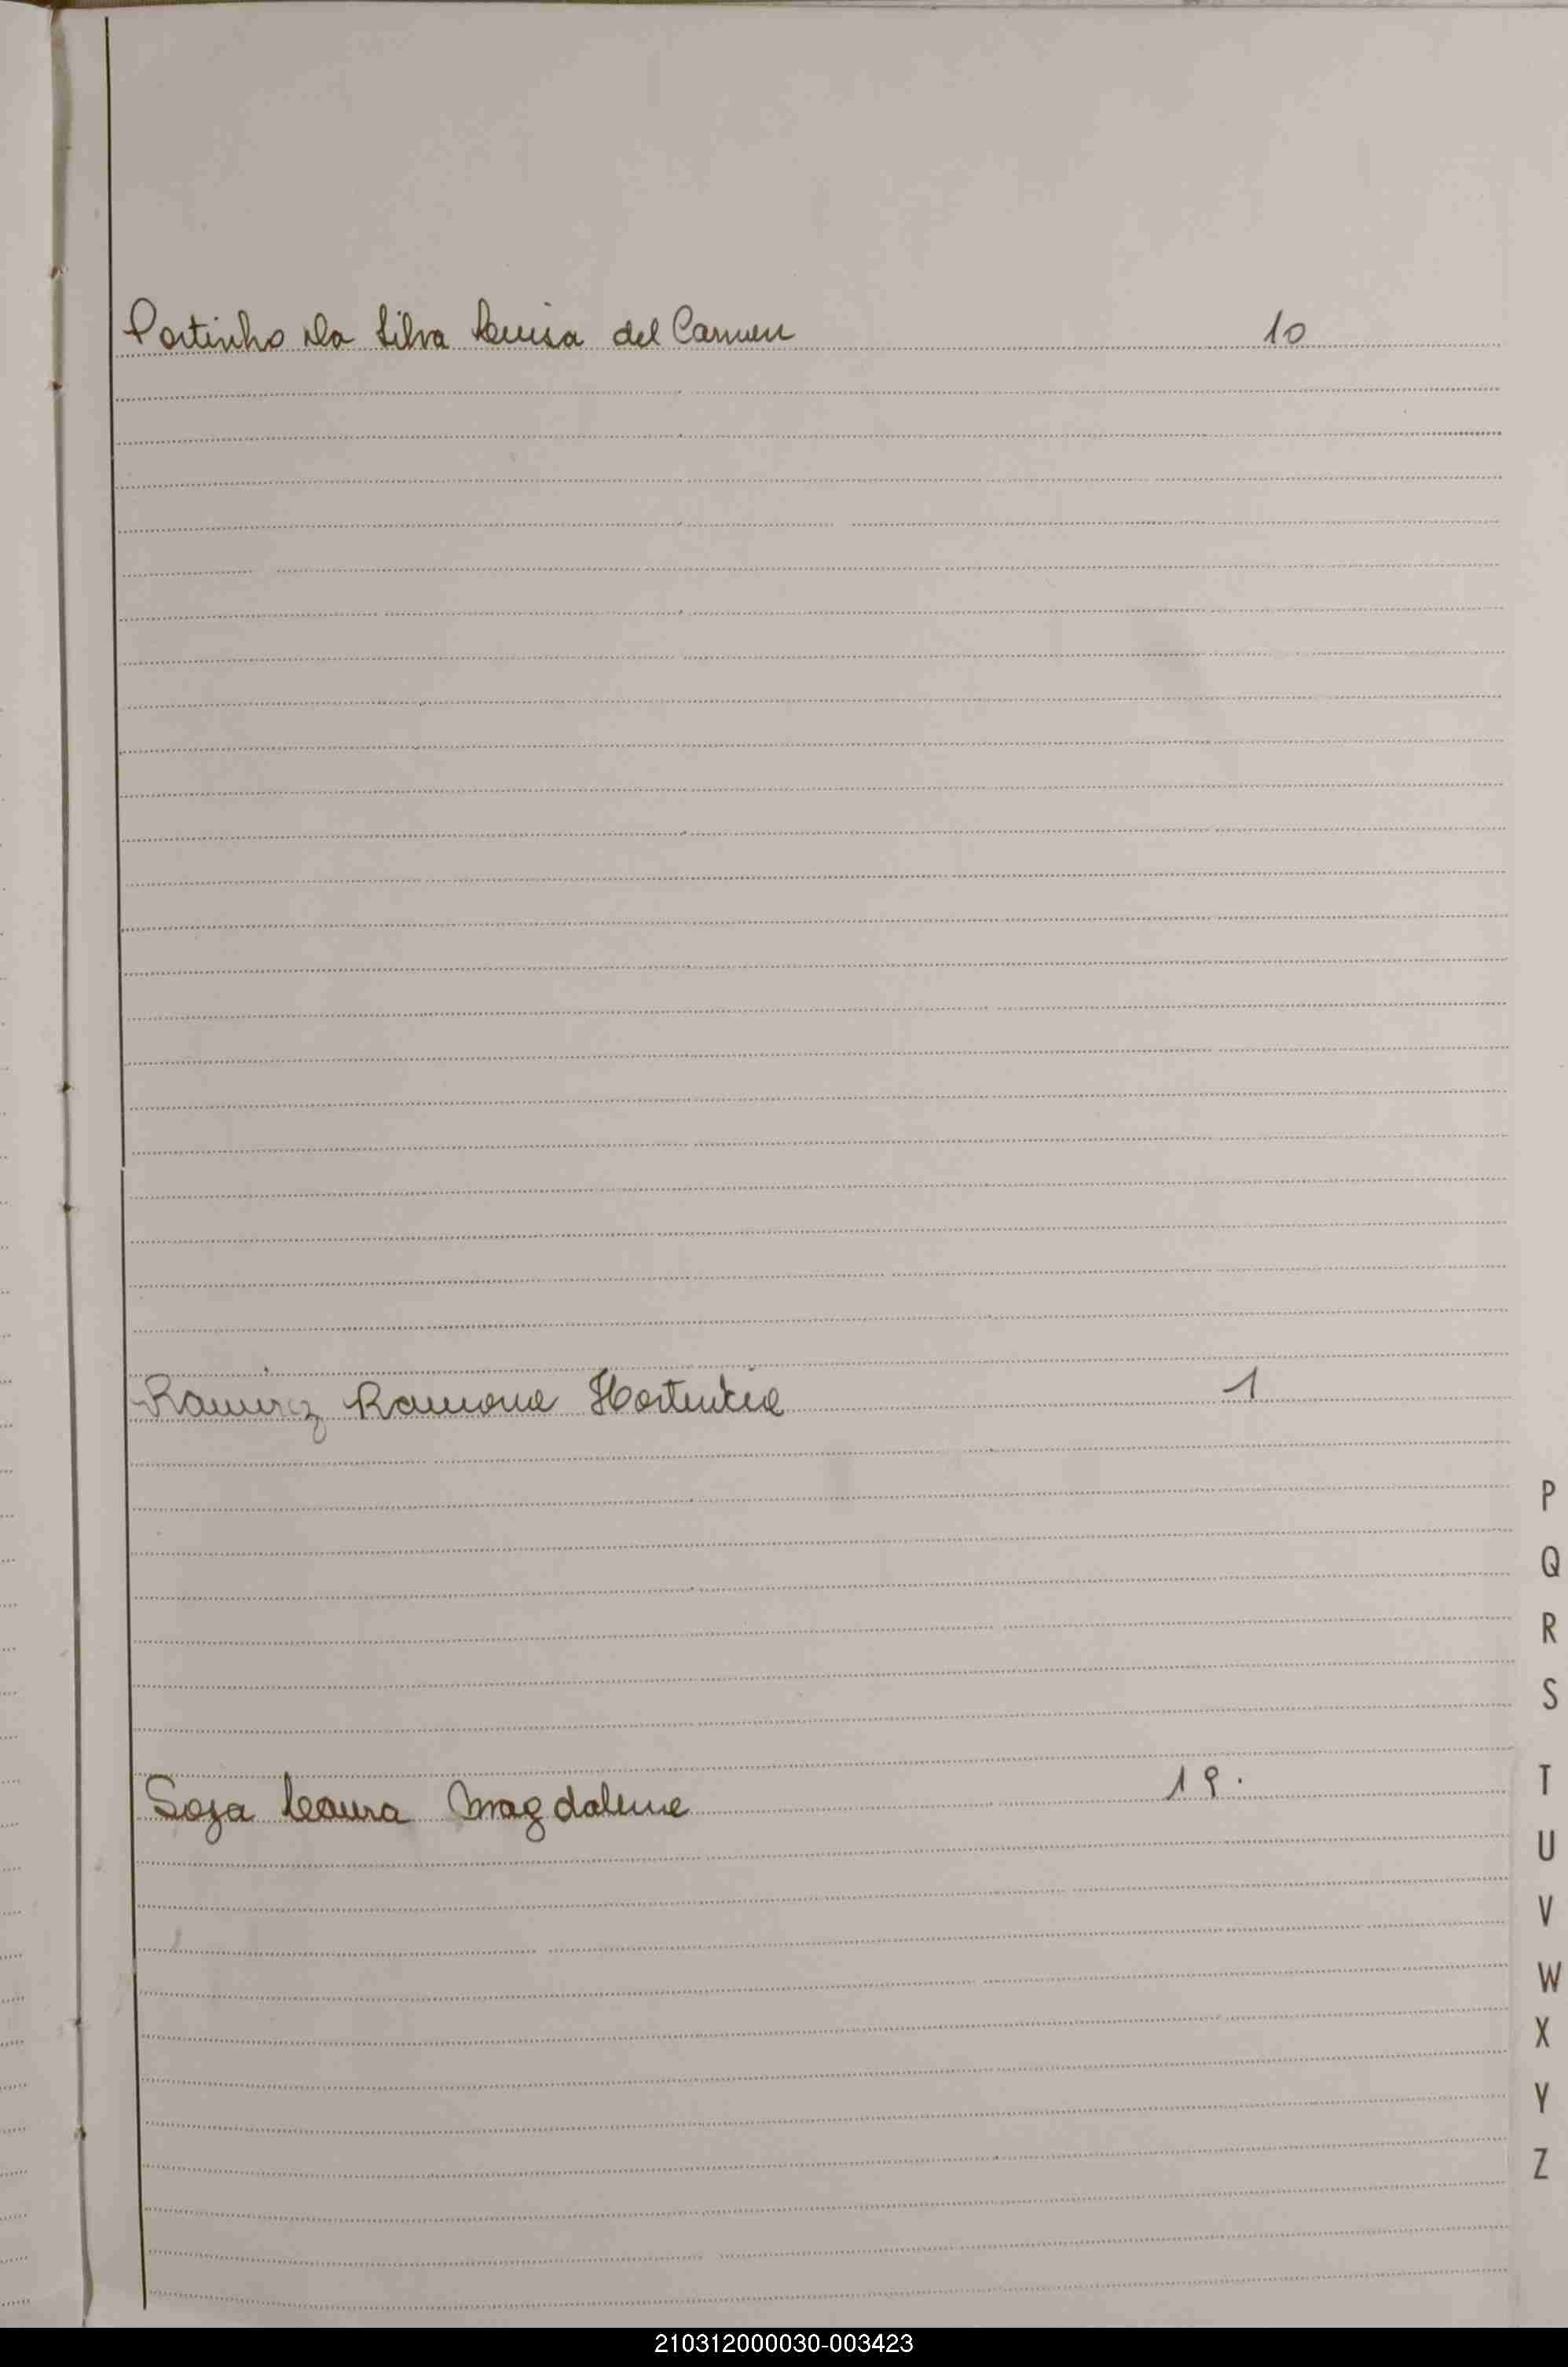 Portinho Da Silva Luisa del Carmen 10
Ramirez Ramona Hortencia 1
P
Q
R
S
Soza Laura Magdalena 19.
T
U
V
W
X
Y
Z
210312000030-003423